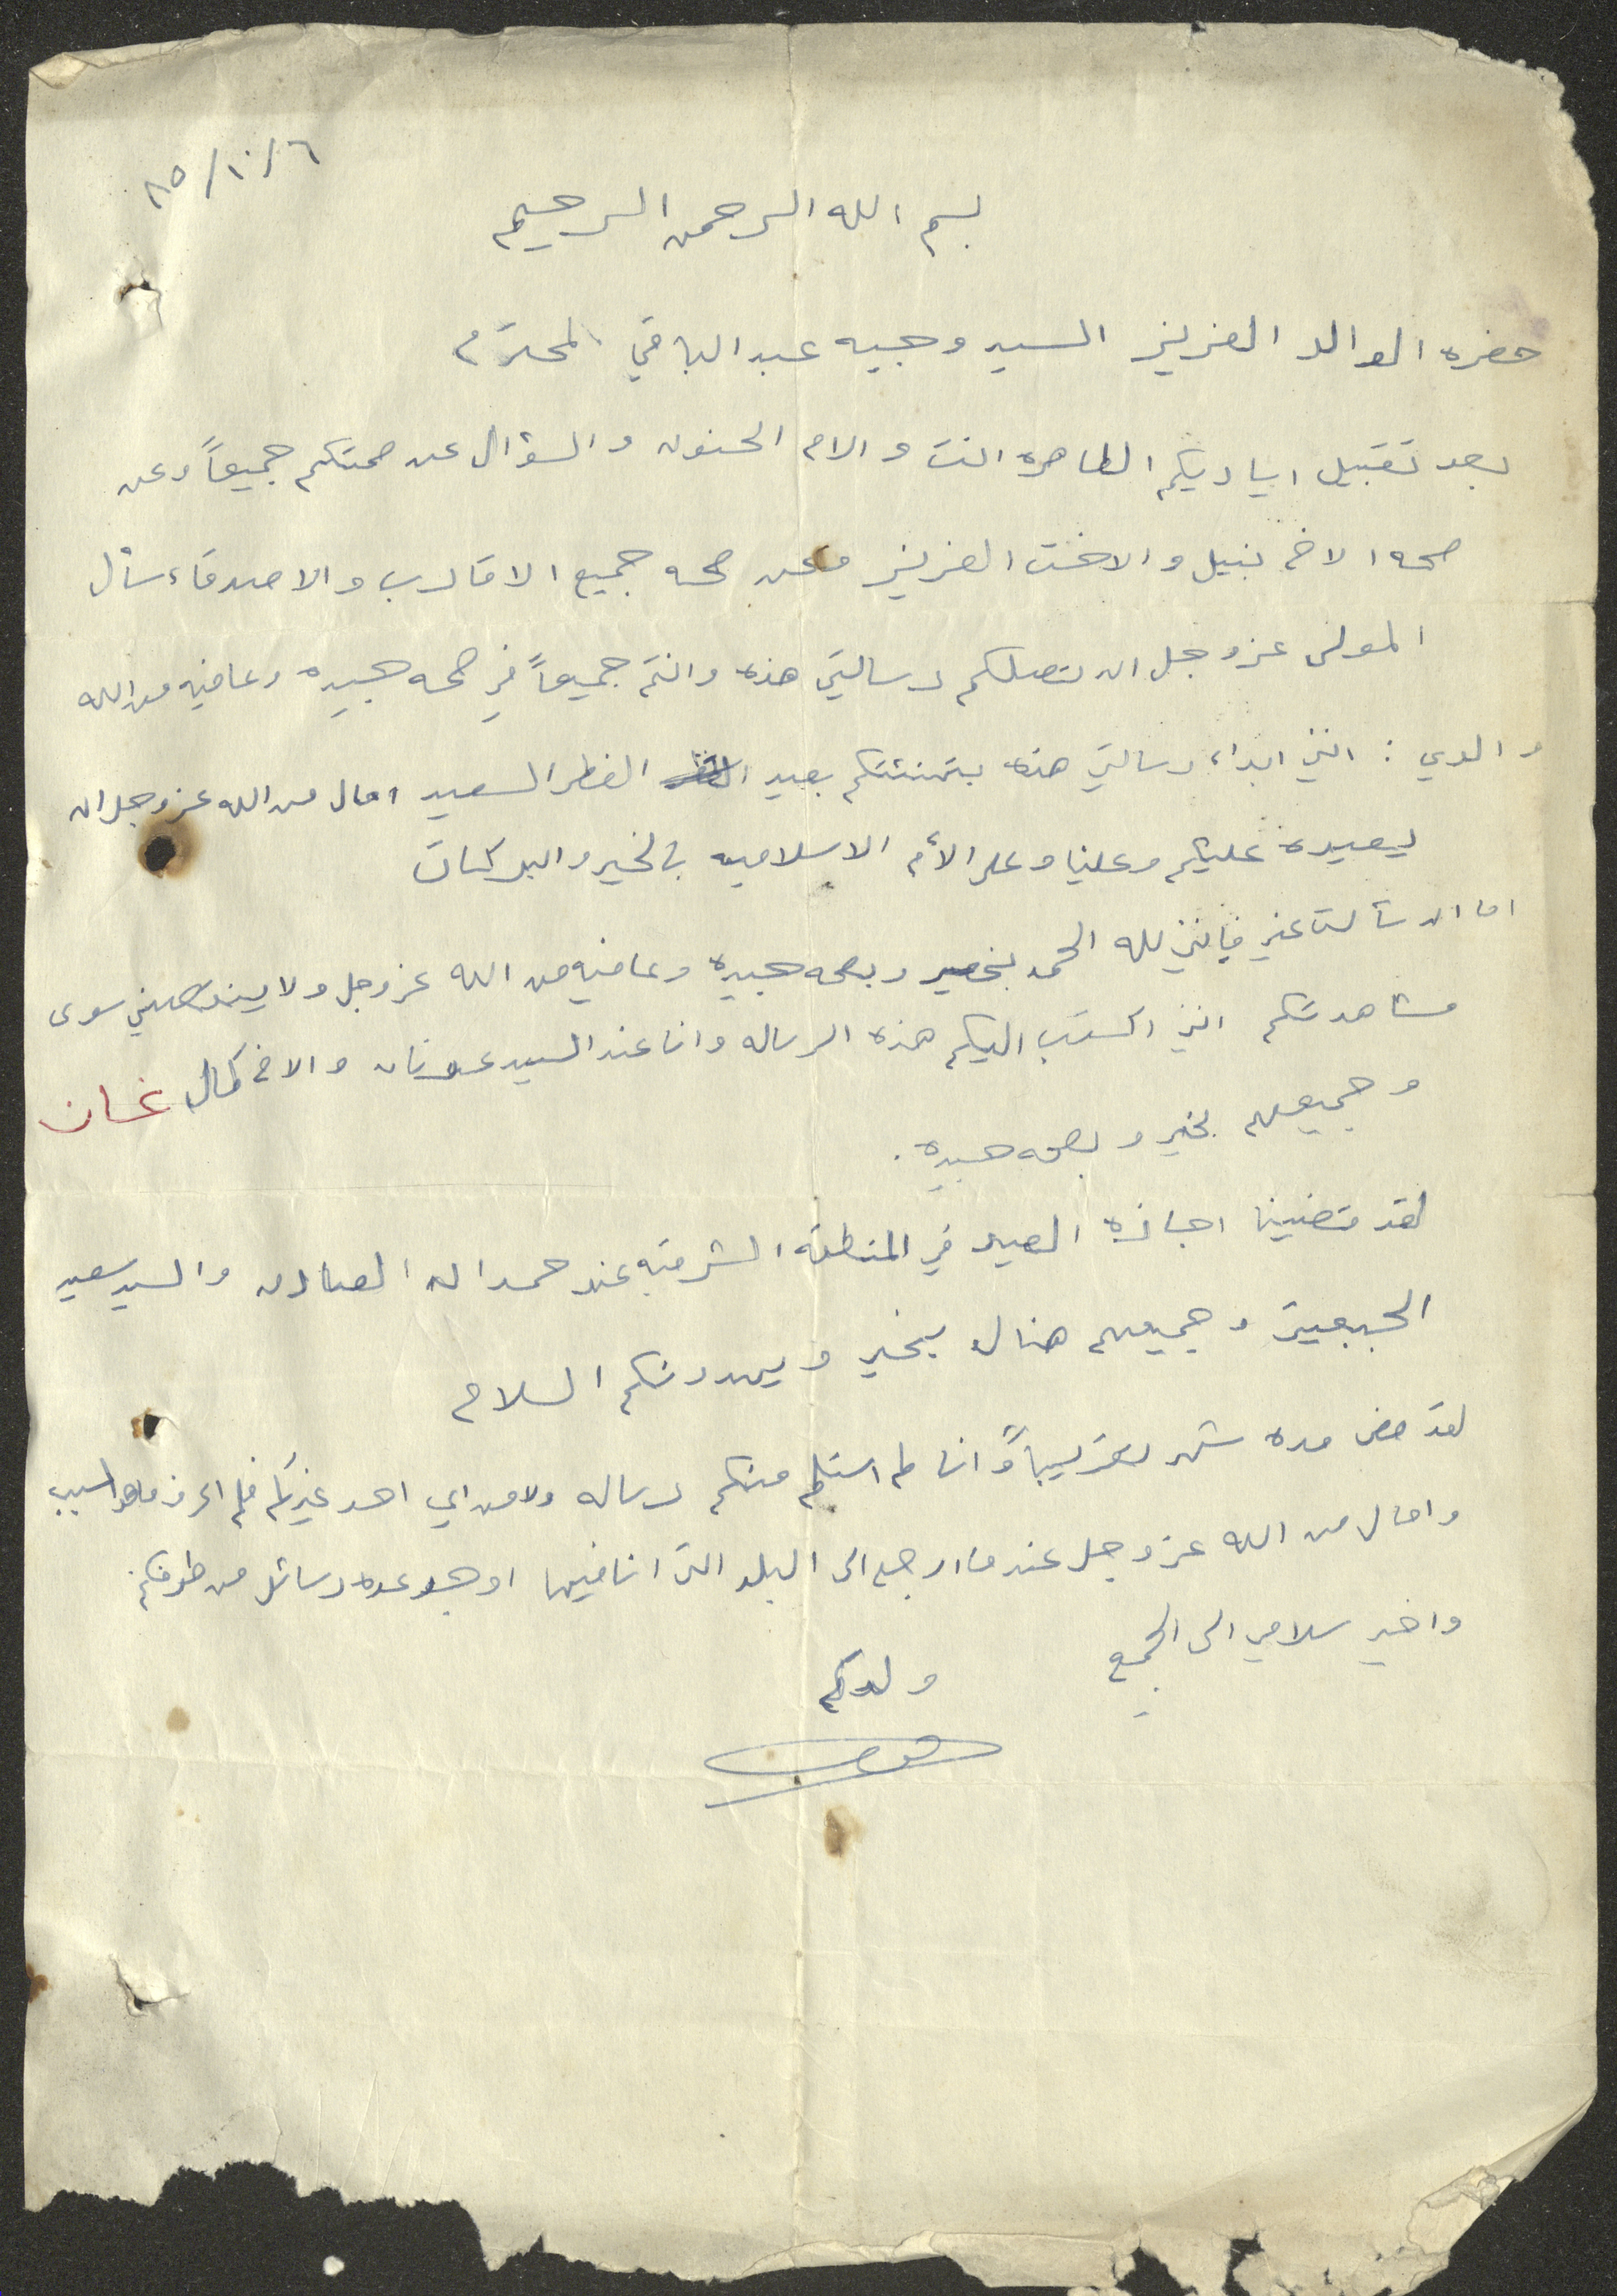 ٨٥/١٠/٦
بسم الله الرحمن الرحيم
حضره الوالد العزيز السيد وجيه عبد الباقي المحترم
بعد تقبيل اياديكم الطاهره انت والام الحنون والسؤال عن صحتكم جميعاً وعن
صحه الاخ نبيل والاخت العزيز وعن صحه جميع الاقارب والاصدقاء سأل
المولى عز وجل ان تصلكم رسالتي هذه وانتم جميعاً في صحه جيده وعافيه من الله
والدي : انني ابداء رسالتي هذه بتهنئتكم بعيد الفطر السعيد امال من الله عز وجل ان
يعيده عليكم وعلينا وعلى الأم الاسلاميه بالخير والبركات
اما ان سألت عني فإنني لله الحمد بخير وبصحه جيده وعافيه من الله عز وجل ولا ينقصني سوى
مشاهدتكم انني اكتب اليكم هذه الرساله وانا عند السيد عدنان والاخ كمال غسان
وجميعهم بخير وبصحه جيده .
لقد قضينا اجازه العيد في المنطقه الشرقيه عند حمدان والسيد سعيد
وجميعهم هناك بخير ويهدونكم السلام
لقد مضى مده شهر تقريباً وانا لم استلم منكم رساله ولا من اي احد غيركم فلم اعرف ما هو السبب
وامال من الله عز وجل عندما ارجع الى البلد التي انا فيها اوجد عده رسائل من طرفكم
واخير سلامي الى الجميع
ولدكم